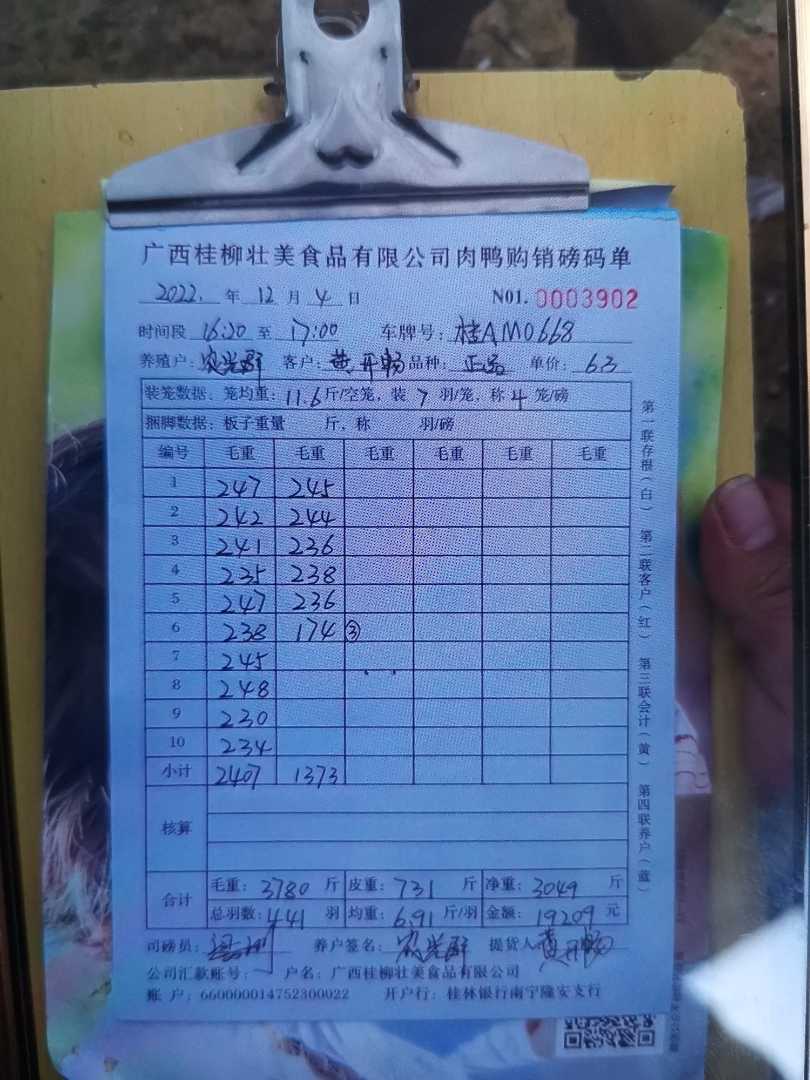 广西桂柳壮美食品有限公司肉鸭购销磅码单
2022. 年 12 月 4 日 N01. 0003902
时间段 16:20 至 17:00 车牌号: 桂AM0668
养殖户: 客户: 黄开畅 品种: 正品 单价: 6.3
装笼数据、笼均重: 11.6 斤/空笼, 装 7 羽/笼, 称 4 笼/磅
捆脚数据: 板子重量 斤, 称 羽/磅
编号 毛重 毛重 毛重 毛重 毛重 毛重
1 247 245
2 242 244
3 241 236
4 235 238
5 247 236
6 238 174 ③
7 245
8 248
9 230
10 234
小计 2407 1373
核算
合计 毛重: 3780 斤 皮重: 731 斤 净重: 3049 斤
总羽数: 441 羽 均重: 6.91 斤/羽 金额: 19209 元
司磅员: 养户签名: 提货人 黄开畅
公司汇款账号: 户名: 广西桂柳壮美食品有限公司
账 户: 660000014752300022 开户行: 桂林银行南宁隆安支行
第一联存根(白) 第二联客户(红) 第三联会计(黄) 第四联养户(蓝)